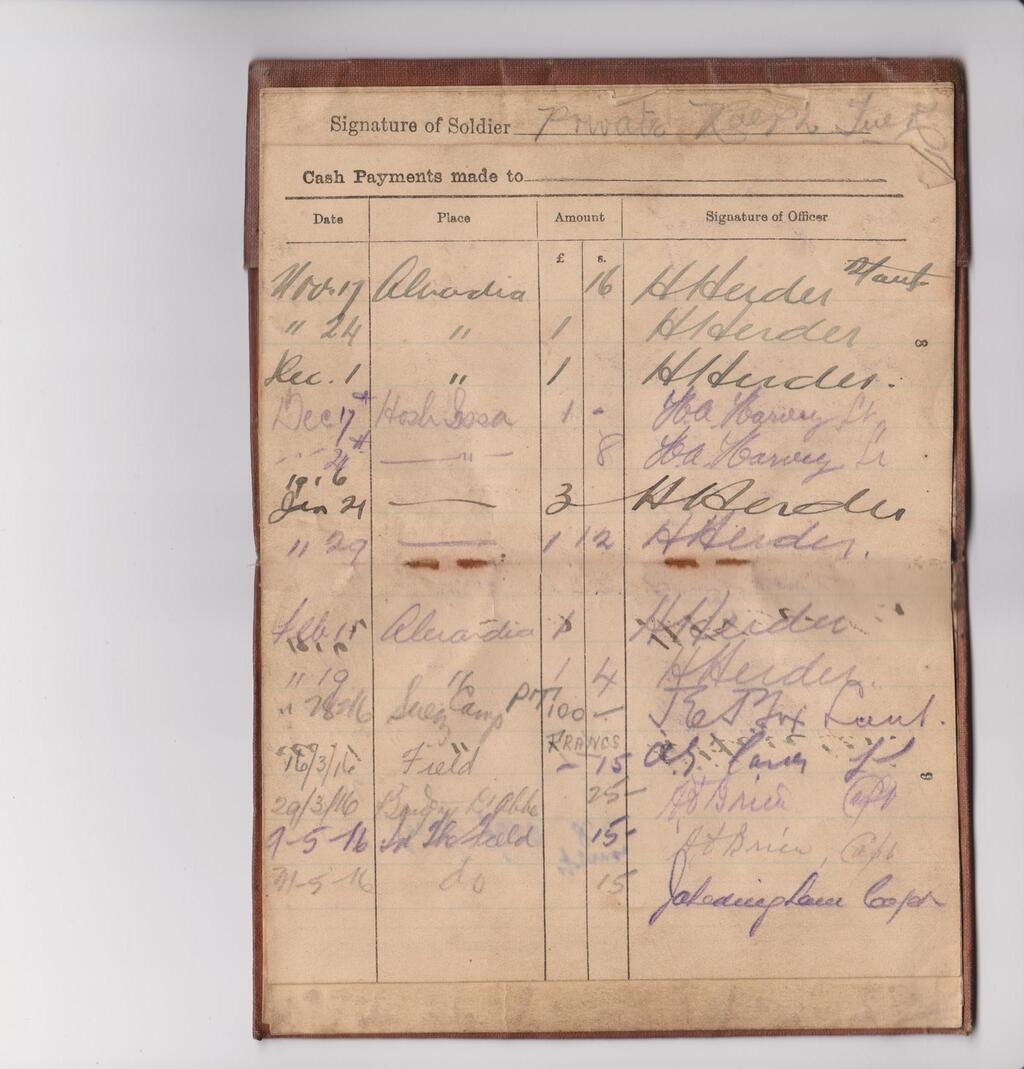 Signature of Soldier Private Ralph
Cash Payments made to
Date Place Amount Signature of Officer
£ s.
Nov. 17 16 H Herder
" 24 " 1 H Herder
8
Dec. 1 " 1 H Herder.
Dec 17th Hosh Issa 1 - H.A. Harvey Lt.
" 8 H.A. Harvey Lt
1916
Jan 21 — 3 H Herder
" 29 — 1 12 H Herder.
Feb 15 1 H Herder
" 19 " 1 4 H Herder.
" Suez Camp P.T. 100 -
FRANCS
16/3/16 Field - 15
9
29/3/16 25 - Capt
9-5-16 In The Field 15 - Capt
31-5-16 do 15 Capt